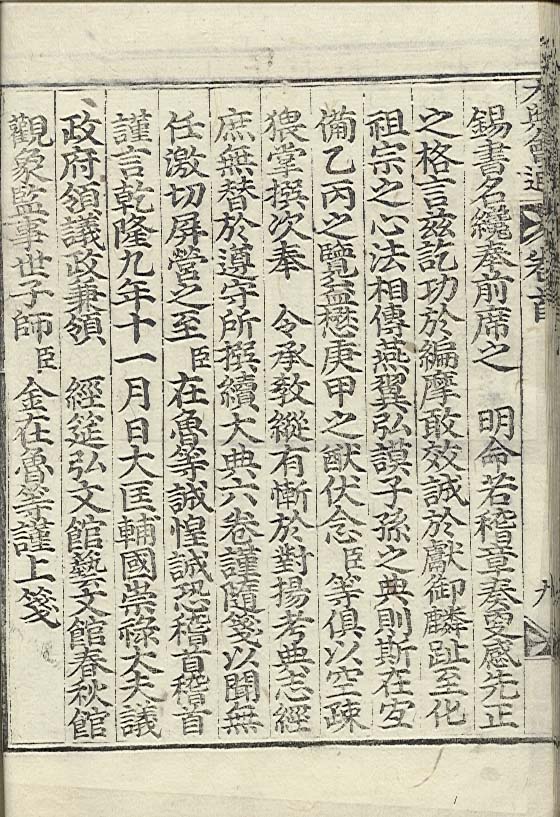 大典會通 卷首 九
錫書名纔奉前席之 明命若稽章奏更感先正
之格言玆訖功於編摩敢效誠於獻御麟趾至化
祖宗之心法相傳燕翼弘謨子孫之典則斯在宜
備乙丙之覽益懋庚甲之猷伏念臣等俱以空疎
猥當撰次奉 令承敎縱有慚於對揚考典志經
庶無替於遵守所撰續大典六卷謹隨箋以聞無
任激切屛營之至臣在魯等誠惶誠恐稽首稽首
謹言乾隆九年十一月日大匡輔國崇祿大夫議
政府領議政兼領 經筵弘文館藝文館春秋館
觀象監事世子師臣金在魯等謹上箋